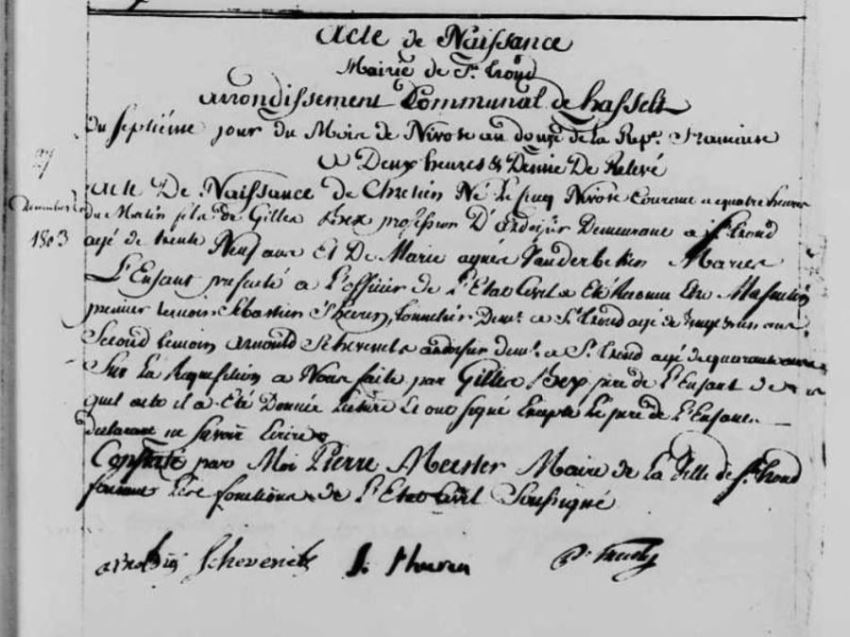 Acte de Naissance
Mairie de St. Trond
arrondissement Communal de hasselt
Du Septième jour du Mois de Nivose an douze de la Rep.e francaise
a Deux heures & Demie De Relevé
27
Decembre
1803
acte De Naissance de Chretien Né Le cinq Nivose Courant a quatre heures
du Matin fils de Gilles Bex profession D'ardoisier Demeurant a St. Trond
agé de trente Neuf ans Et De Marie agnès Vanderbeken Mariés
L'Enfant presenté a L'officier de L'Etat Civil a Eté Reconnu Etre Masculin
premier temoin Sebastien Theven, Demt. a St. Trond agé de ans
Second temoin arnould Schevenels ardoisier demt. a St. Trond agé de quarante ans
Sur La Requisition a Nous faite par Gilles Bex pere de L'Enfant de
quel acte il a Eté Donnée Lecture Et ont signé Excepté Le pere de L'Enfant
declarant ne Savoir Ecrire
Constaté par Moi Pierre Meester Maire de La Ville de St. Trond
faisant Les fonctions de L'Etat Civil Soussigné
Schevenels S. Theven